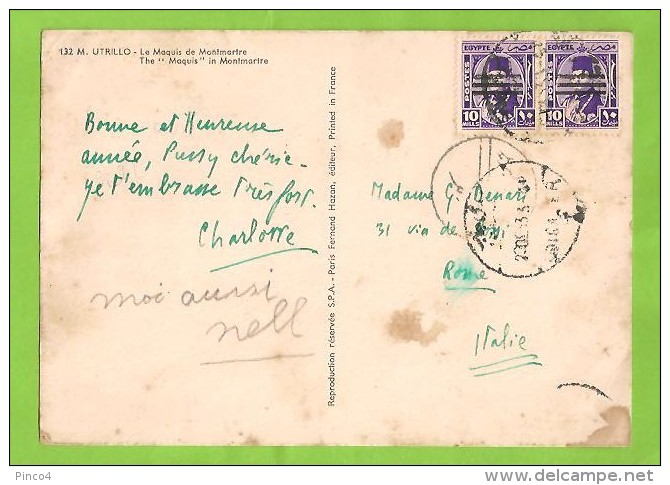 132 M. UTRILLO - Le Maquis de Montmartre
The "Maquis" in Montmartre
Bonne et Heureuse
année, Pussy chérie.
je t'embrasse très fort.
Charlotte
moi aussi
nell
Reproduction réservée S.P.A. - Paris Fernand Hazan, éditeur, Printed in France
EGYPTE مصر
POSTES
10 MILLS ١٠
EGYPTE مصر
POSTES
10 MILLS ١٠
Madame G. Denari
31 via de
Rome
Italie
Pinco4
www.delcampe.net